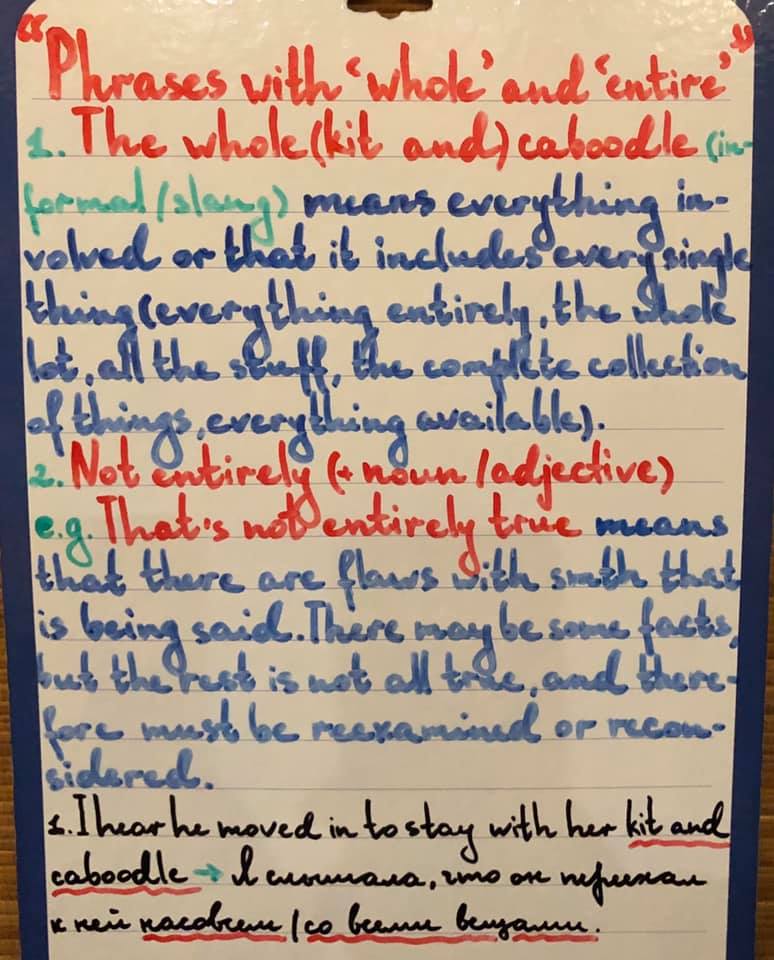 "Phrases with 'whole' and 'entire'"
1. The whole (kit and) caboodle (in-
formal/slang) means everything in-
volved or that it includes every single
thing (everything entirely, the whole
lot, all the stuff, the complete collection
of things, everything available).
2. Not entirely (+ noun/adjective)
e.g. That's not entirely true means
that there are flaws with smth that
is being said. There may be some facts,
but the rest is not all true, and there-
fore must be reexamined or recon-
sidered.
1. I hear he moved in to stay with her kit and
caboodle → Я слышала, что он переехал
к ней насовсем / со всеми вещами.